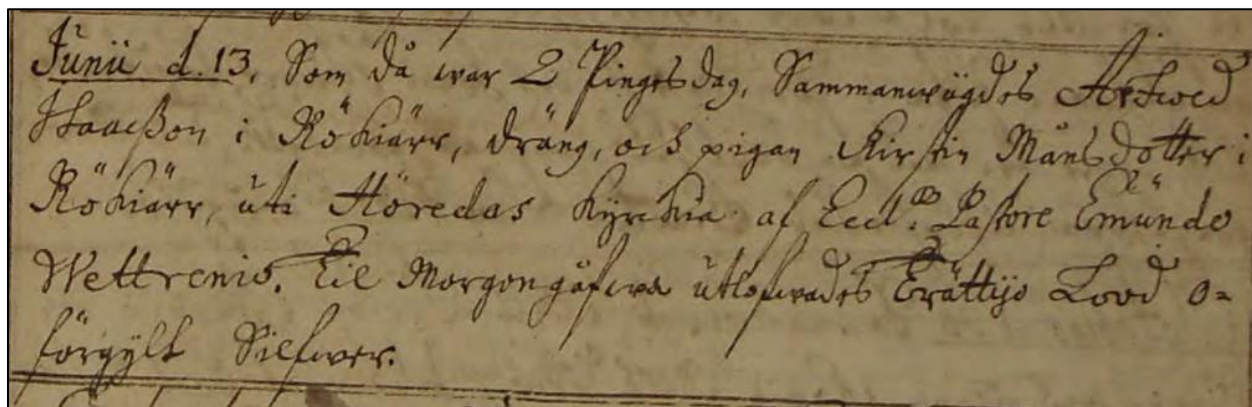 Junii d. 13. Som då war 2 Pingesdag, Sammanwigdes Arfwed
Isaacßon i Rökiärr, dräng, och pigan Kirstin Månsdotter i
Rökiärr, uti Höredas Kyrckia af Eccl. Pastore Emundo
Wettrenio. Til Morgongåfwa utlofwades Trättijo Lood o=
förgylt Silfwer.